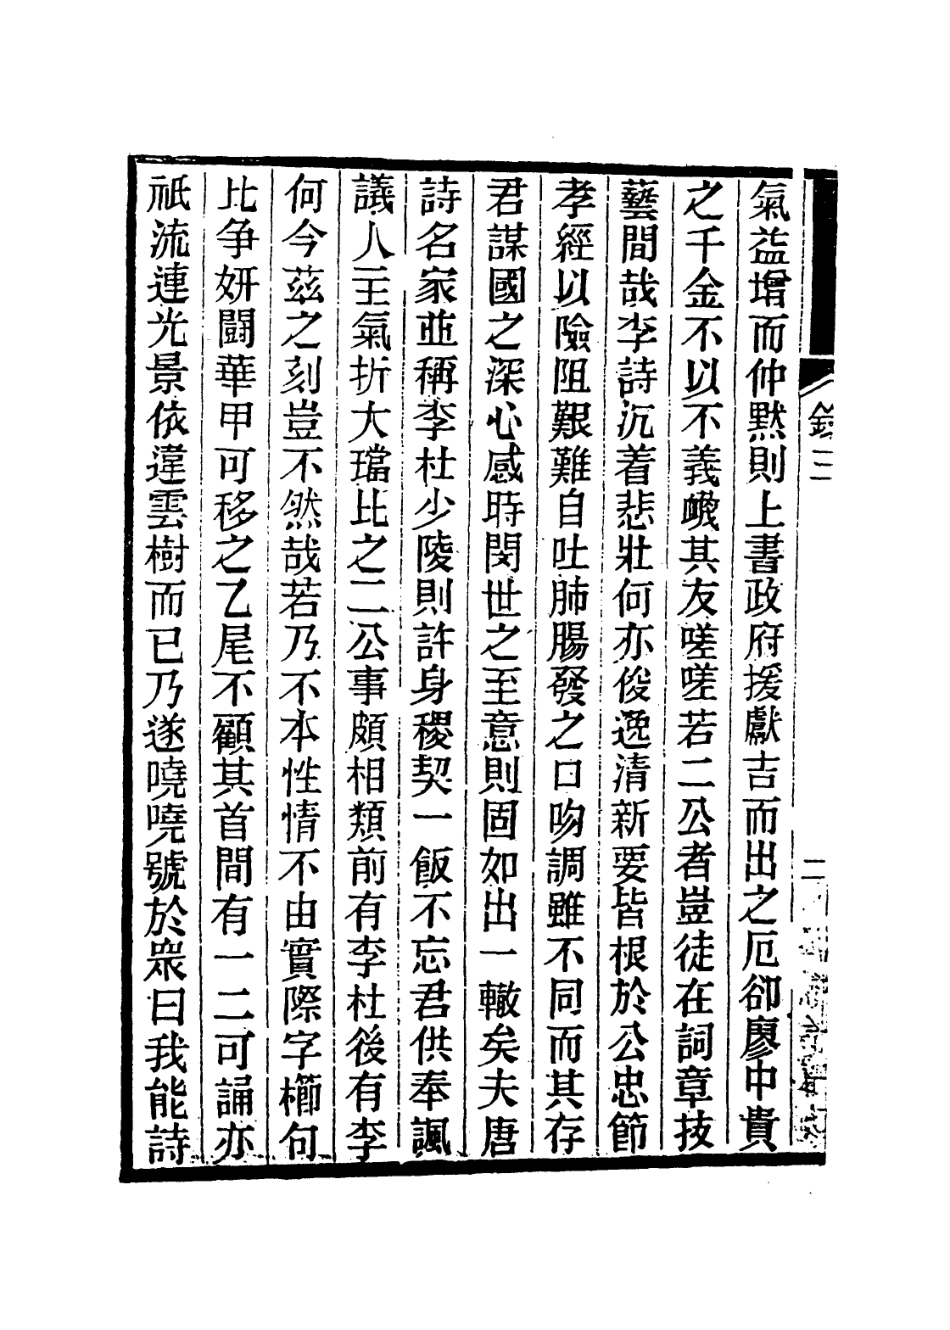 氣益增而仲黙則上書政府援獻吉而出之厄卻廖中貴
之千金不以不義衊其友嗟嗟若二公者豈徒在詞章技
藝間哉李詩沉着悲壯何亦俊逸清新要皆根於公忠節
孝經以險阻艱難自吐肺腸發之口吻調雖不同而其存
君謀國之深心感時閔世之至意則固如出一轍矣夫唐
詩名家並稱李杜少陵則許身稷契一飯不忘君供奉諷
議人主氣折大璫比之二公事頗相類前有李杜後有李
何今茲之刻豈不然哉若乃不本性情不由實際字櫛句
比争妍鬭華甲可移之乙尾不顧其首間有一二可誦亦
祇流連光景依違雲樹而已乃遂嘵嘵號於衆曰我能詩